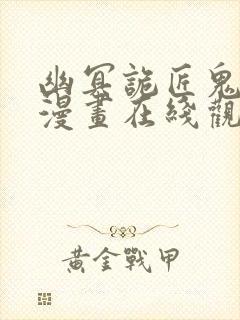 幽冥詭匠鬼
漫畫在綫觀
黃金戰甲